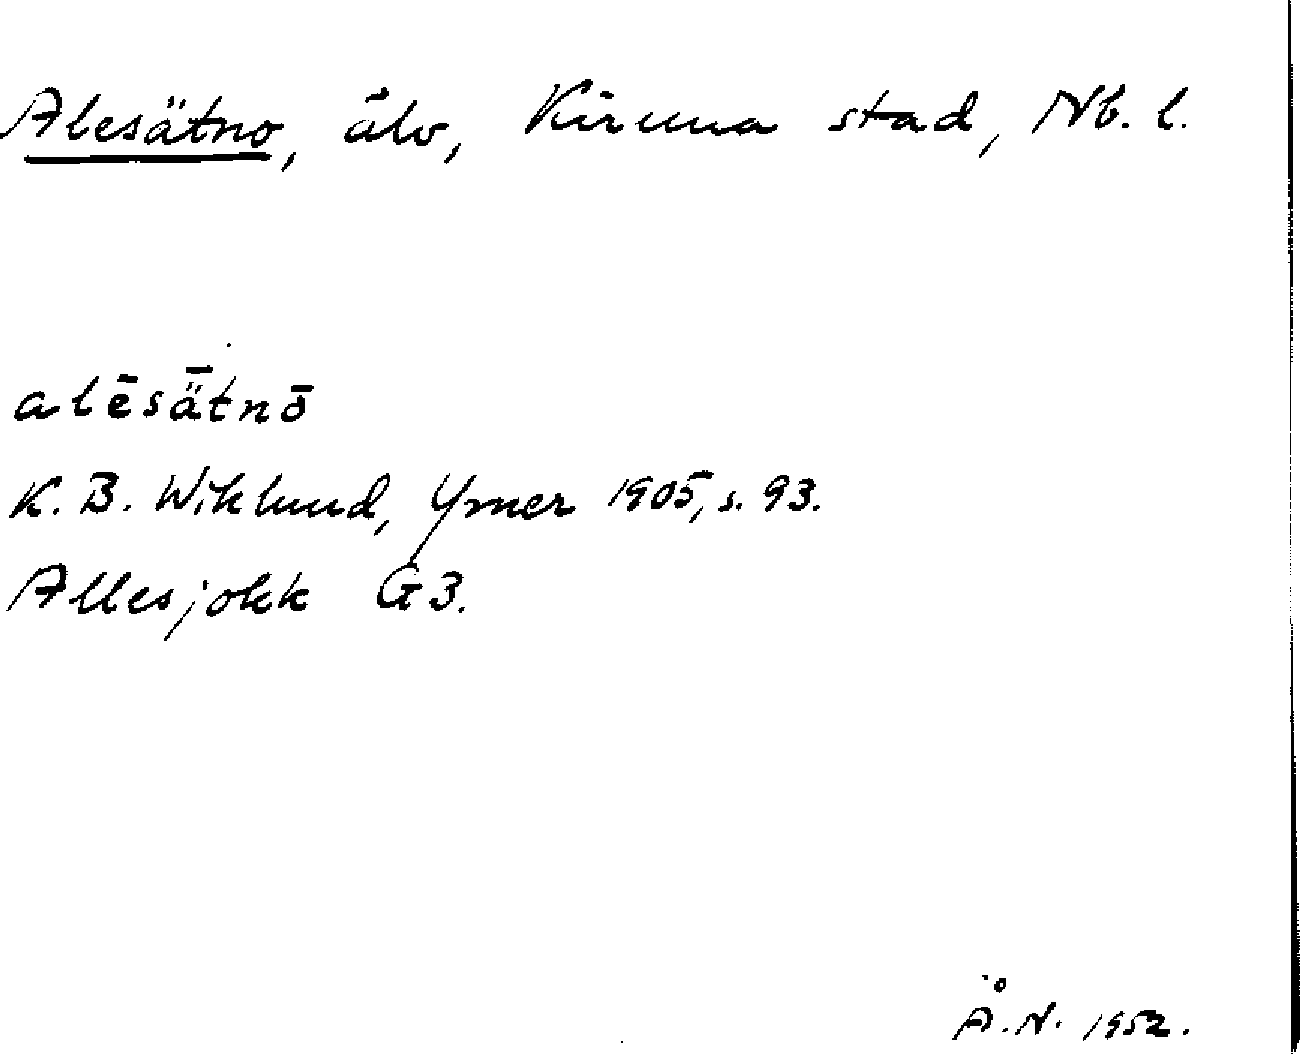 Alesätno, älv, Kiruna stad, Nb. l.
alēsǟtnō
K. B. Wiklund, Ymer 1905, s. 93.
Allesjokk G3.
Å. N. 1952.